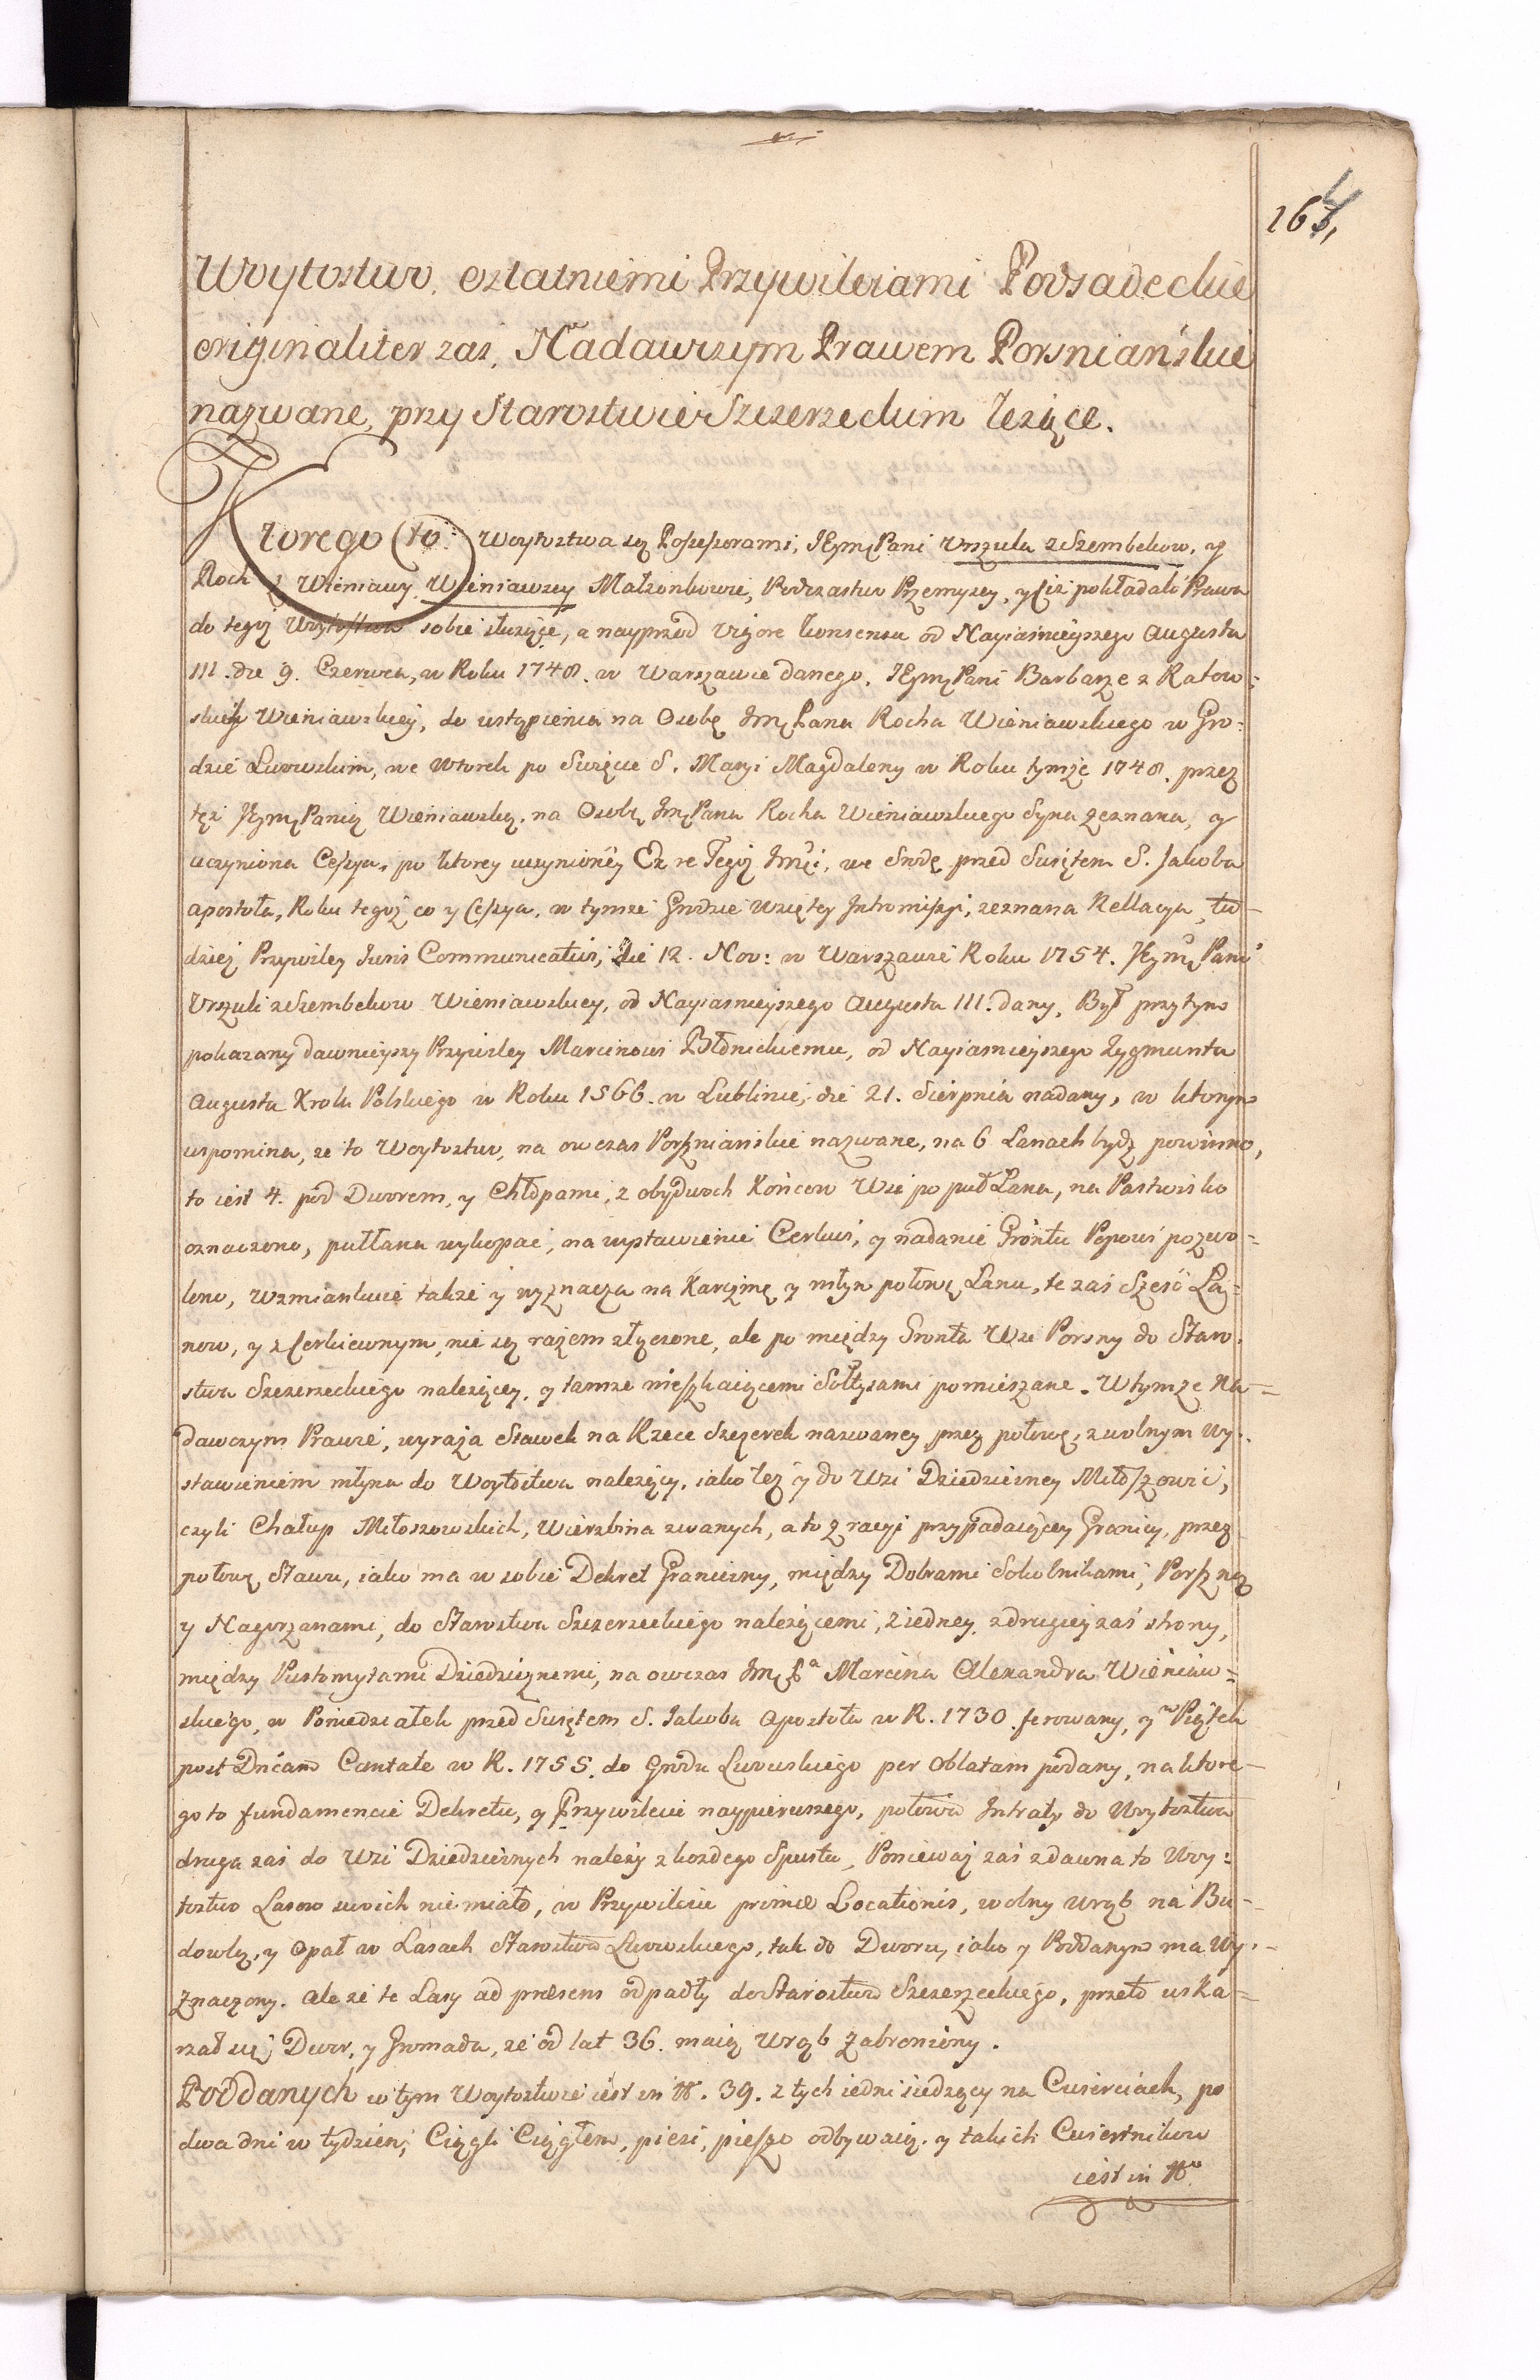 164,
Woytostwo, ostatniemi Przywileiami Podsadeckie
originaliter zaś, Nadawczym Prawem Porsniańskie
nazwane, przy Starostwie Szczerzeckim leżące.
Ktorego (to:) Woytostwa są Possessorami, JEymć Pani Urszula z Szembekow, y
Roch z Wieniawy Wieniawscy Małżonkowie, Podczastwo Przemyscy, y Ciż pokładali Prawa
do tegoż Woytostwa sobie służące, a nayprzod Vigore Konsensu od Nayiaśnieyszego Augusta
III. die 9. Czerwca, w Roku 1748. w Warszawie danego, JEymć Pani Barbarze z Ratow-
skich Wieniawskiey, do ustąpienia na Osobę Jmć Pana Rocha Wieniawskiego w Gro-
dzie Lwowskim, we Wtorek po Swięcie S. Maryi Magdaleny w Roku tymże 1748. przez
też JEymć Panią Wieniawską, na Osobę Jmć Pana Rocha Wieniawskiego Syna zeznana, y
uczyniona Cessya, po ktorey uczynioney Ex re Tegoż Jmści, we Srodę przed Swiętem S. Jakoba
Apostoła, Roku tegoż co y Cessya, w tymże Grodzie wziętey Intromissyi, zeznana Rellacya, tu-
dzież Przywiley Juris Communicativi, die 12. Nov: w Warszawie Roku 1754. JEymć Pani
Urszuli z Szembekow Wieniawskiey, od Nayiasnieyszego Augusta III. dany, Był przytym
pokazany dawnieyszy Przywiley Marcinowi Błdnickiemu, od Nayiasnieyszego Zygmunta
Augusta Krola Polskiego w Roku 1566. w Lublinie, die 21. Sierpnia nadany, w ktorym
wspomina, że to Woytostwo, na owczas Porszniańskie nazwane, na 6 Łanach bydź powinno,
to iest 4. pod Dworem, y Chłopami, z obydwoch Końcow Wsi po puł Łana, na Pastwisko
oznaczono, puł Łana wykopać, na wystawienie Cerkwi, y nadanie Gróntu Popowi pozwo-
lono, wzmiankuie także y wyznacza na Karczmę y młyn połowę Łanu, te zaś Sześć Ła-
now, y z Cerkiewnym, nie są razem złączone, ale po między Gronta Wsi Porsny do Staro-
stwa Szczerzeckiego należącey, y tamże mieszkaiącemi Sołtysami pomieszane. W tymże Na-
dawczym Prawie, wyraża Stawek na Rzece Szczerek nazwaney przez połowę, z wolnym Wy-
stawieniem młyna do Woytostwa należący, iako też y do Wsi Dziedziczney Miłoszowic,
czyli Chałup Miłoszowskich, Wierzbina zwanych, a to z racyi przypadaiącey Granicy, przez
połowę Stawu, iako ma w sobie Dekret Graniczny, między Dobrami Sokolnikami, Porszną
y Nagorzanami, do Starostwa Szczerzeckiego należącemi, z iedney, z drugiey zaś strony,
między Pustomytami Dziedzicznemi, na owczas Jmć Pa Marcina Alexandra Wieniaw-
skiego, w Poniedziałek przed Swiętem S. Jakoba Apostoła w R. 1730. ferowany, y w Piątek
post Dnicam Cantate w R. 1755. do Grodu Lwowskiego per Oblatam podany, na ktore-
go to fundamencie Dekretu, y Przywileiu naypierwszego, połowa Intraty do Woytostwa
druga zaś do Wsi Dziedzicznych należy z kożdego Spustu, Ponieważ zaś z dawna to Woy-
tostwo Lasow swoich nie miało, w Przywileiu primæ Locationis, wolny wrąb na Bu-
dowlą, y Opał w Lasach Starostwa Lwowskiego, tak do Dworu, iako y Poddanym ma Wy-
znaczony. Ale że te Lasy ad præsens odpadły do Starostwa Szczerzeckiego, przeto uska-
rzał się Dwor, y Gromada, że od lat 36. maią Wrąb zabroniony.
Poddanych w tym Woytostwie iest in No. 39. z tych iedni siedzący na Cwierciach, po
dwa dni w tydzień, Ciągli Ciągłem, piesi, pieszo odbywaią. y takich Cwiertnikow
iest in No